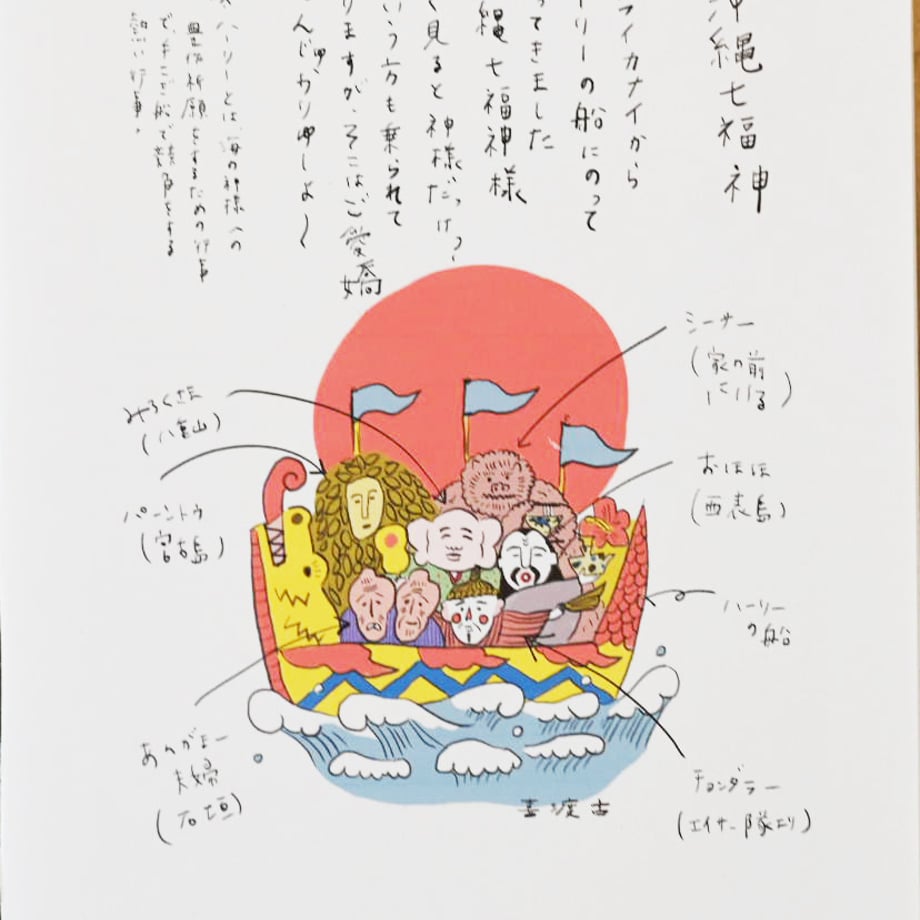 沖縄七福神
ライカナイから
ーリーの船にのって
ってきました
縄七福神様
く見ると神様だっけ?
いう方も乗られて
りますが、そこはご愛嬌
ハーリーとは、海の神様への
豊作祈願をするための行事
で、手こぎ船で競争をする
熱い行事。
シーサー
(家の前
にいる)
みろくさま
(八重山)
おほほ
(西表島)
パーントゥ
(宮古島)
ハーリー
の船
あんがまー
夫婦
(石垣)
チョンダラー
(エイサー隊より)